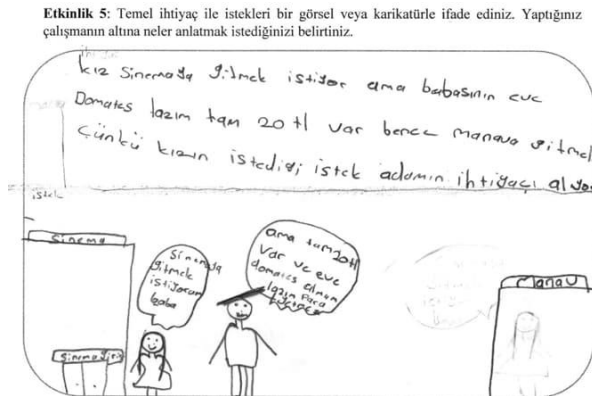 Etkinlik 5: Temel ihtiyaç ile istekleri bir görsel veya karikatürle ifade ediniz. Yaptığınız
çalışmanın altına neler anlatmak istediğinizi belirtiniz.
kız Sinemaya gitmek istiyor ama babasının eve
Domates lazım tam 20 tl var bence manava gitmel
Çünkü kızın istediği istek adamın ihtiyacı alıyo
istek
Sinema
Sinemaya
gitmek
istiyorum
baba
ama tam 20 tl
var ve eve
domates almam
lazım Para
Manav
Sinema